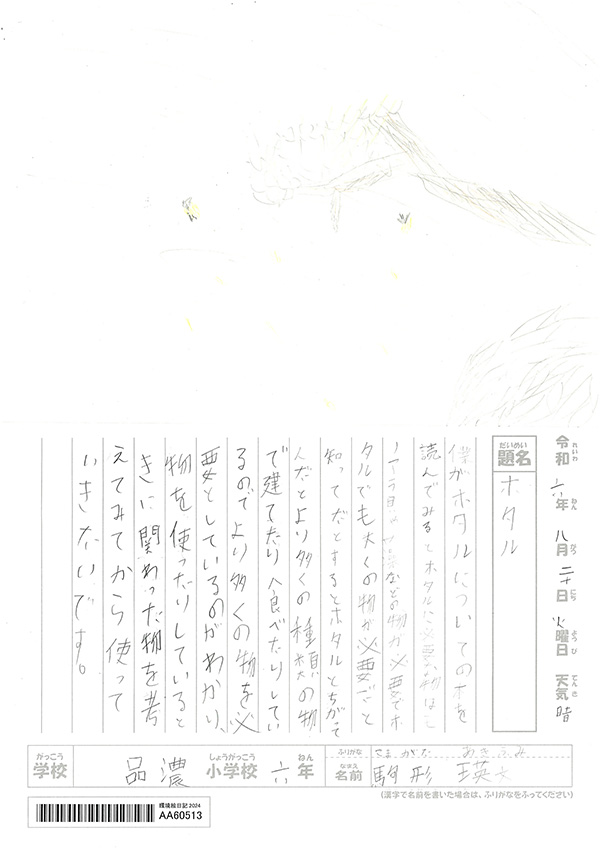 令和六年八月二十日火曜日天気晴
れいわ ねん がつ にち ようび てんき
だいめい
題名
ホタル
僕がホタルについての本を
読んでみるとホタルに必要な物は
などの物が必要でホ
タルでも大くの物が必要だと
知ってだとするとホタルとちがって
人だとより多くの種類の物
で建てたり食べたりしてい
るのでより多くの物を必
要としているのがわかり、
物を使ったりしていると
きに関わった物を考
えてみてから使って
いきたいです。
がっこう しょうがっこう ねん
学校 品濃小学校六年
ふりがな こまがた あきふみ
なまえ
名前 駒形 瑛文
(漢字で名前を書いた場合は、ふりがなをふってください)
環境絵日記2024
AA60513